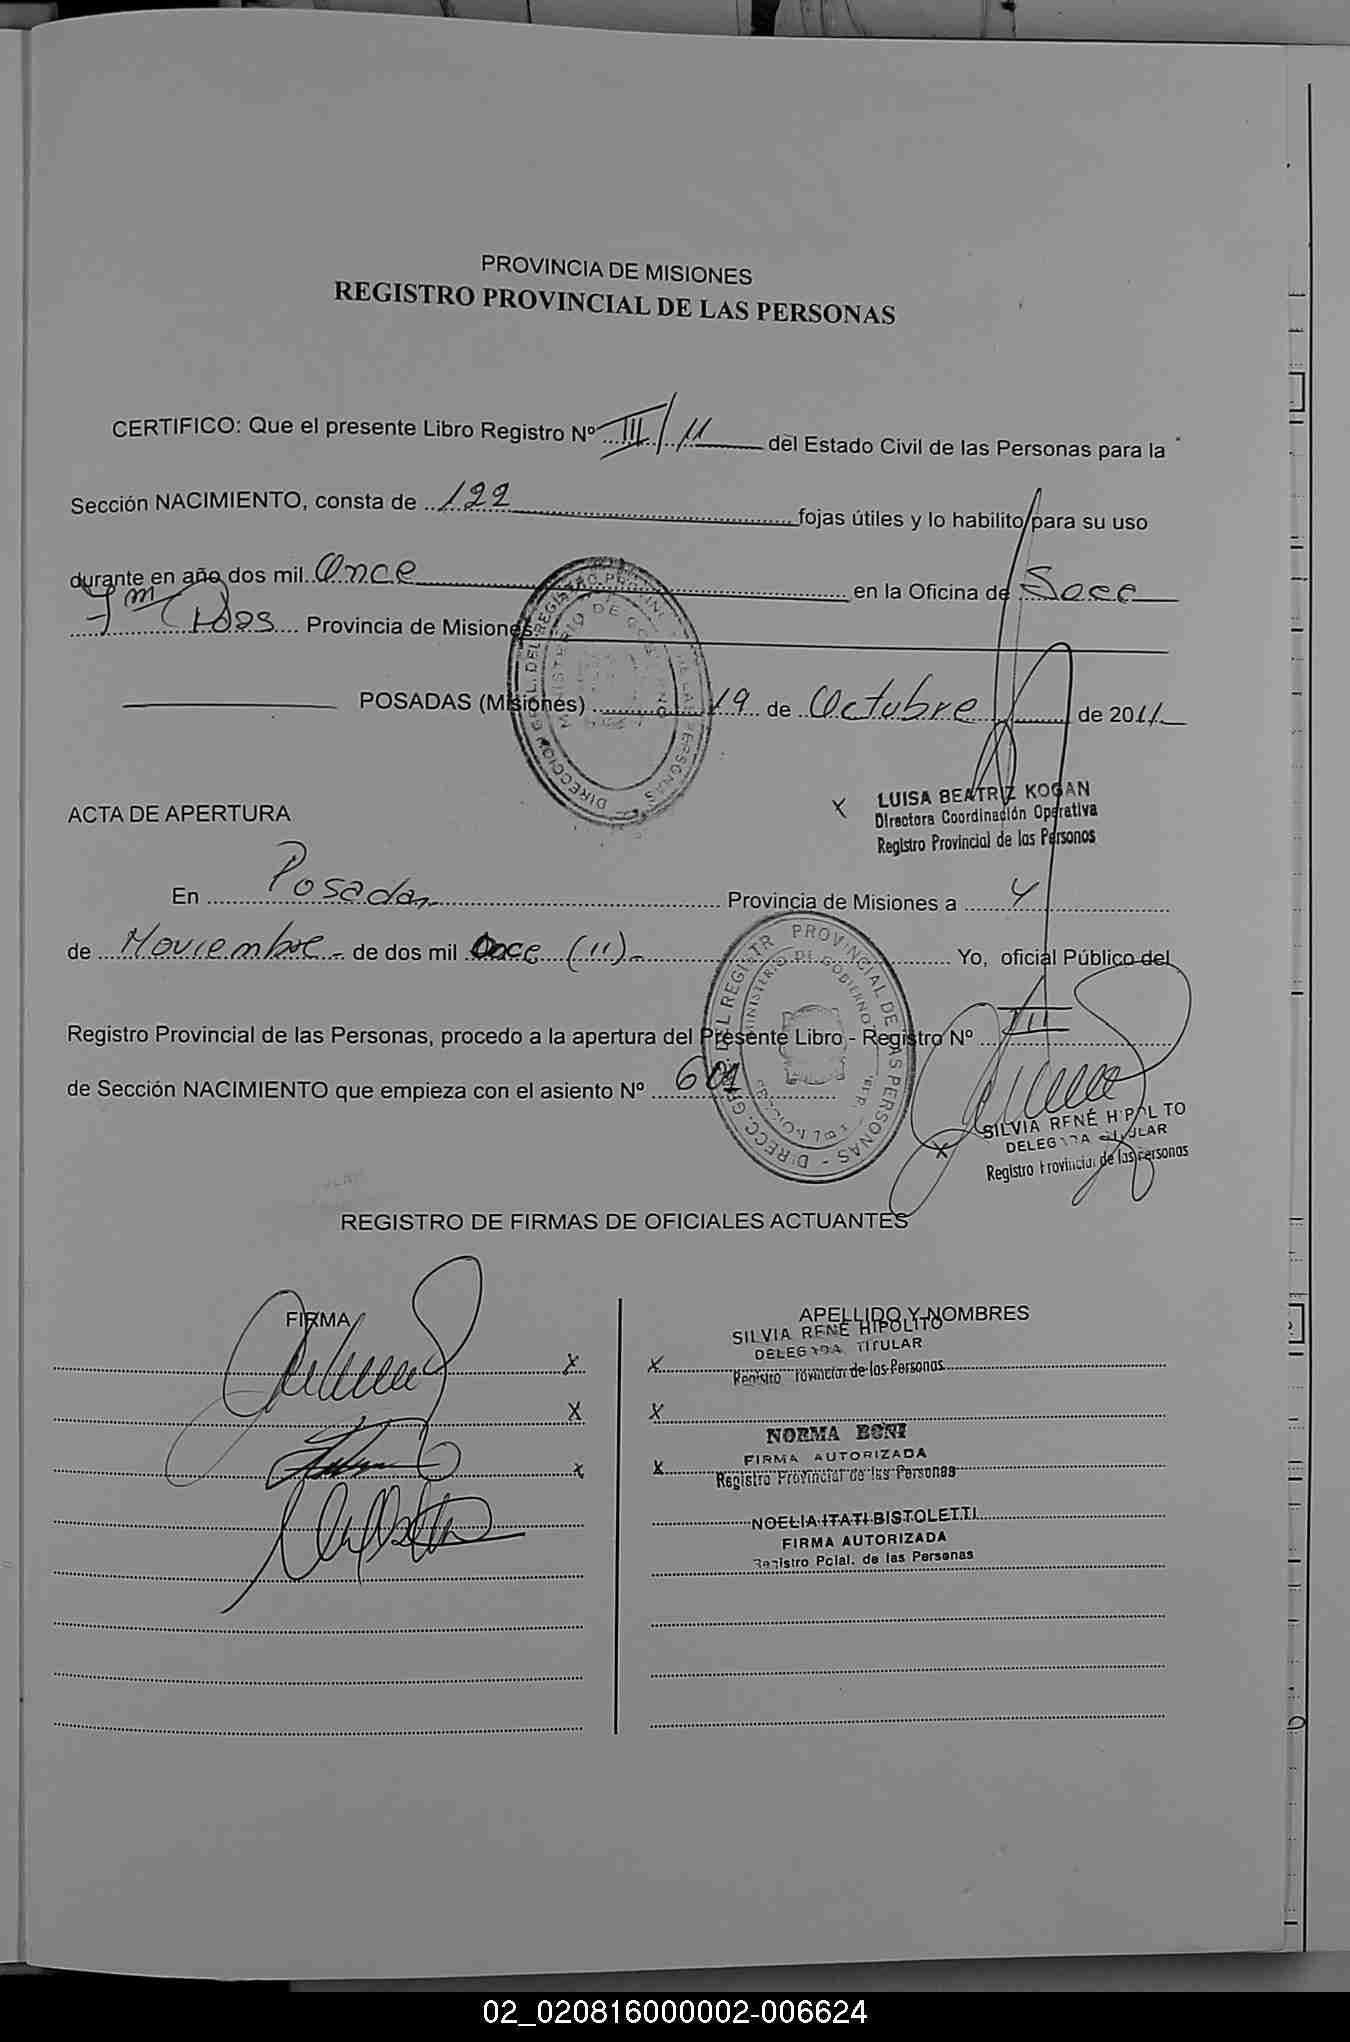 PROVINCIA DE MISIONES
REGISTRO PROVINCIAL DE LAS PERSONAS
CERTIFICO: Que el presente Libro Registro Nº III/11 del Estado Civil de las Personas para la
Sección NACIMIENTO, consta de 122 fojas útiles y lo habilito para su uso
durante en año dos mil Once en la Oficina de Secc
1m Pdas Provincia de Misiones
POSADAS (Misiones) 19 de Octubre de 2011
LUISA BEATRIZ KOGAN
Directora Coordinación Operativa
Registro Provincial de las Personas
ACTA DE APERTURA
En Posadas Provincia de Misiones a 4
de Noviembre.- de dos mil Once (11).- Yo, oficial Público del
Registro Provincial de las Personas, procedo a la apertura del Presente Libro - Registro Nº III
de Sección NACIMIENTO que empieza con el asiento Nº 601
SILVIA RENÉ HIPOLITO
DELEGADA TITULAR
Registro Provincial de las Personas
REGISTRO DE FIRMAS DE OFICIALES ACTUANTES
FIRMA APELLIDO Y NOMBRES
SILVIA RENÉ HIPOLITO
DELEGADA TITULAR
Registro Provincial de las Personas
NORMA BONI
FIRMA AUTORIZADA
Registro Provincial de las Personas
NOELIA ITATI BISTOLETTI
FIRMA AUTORIZADA
Registro Pcial. de las Personas
02_020816000002-006624